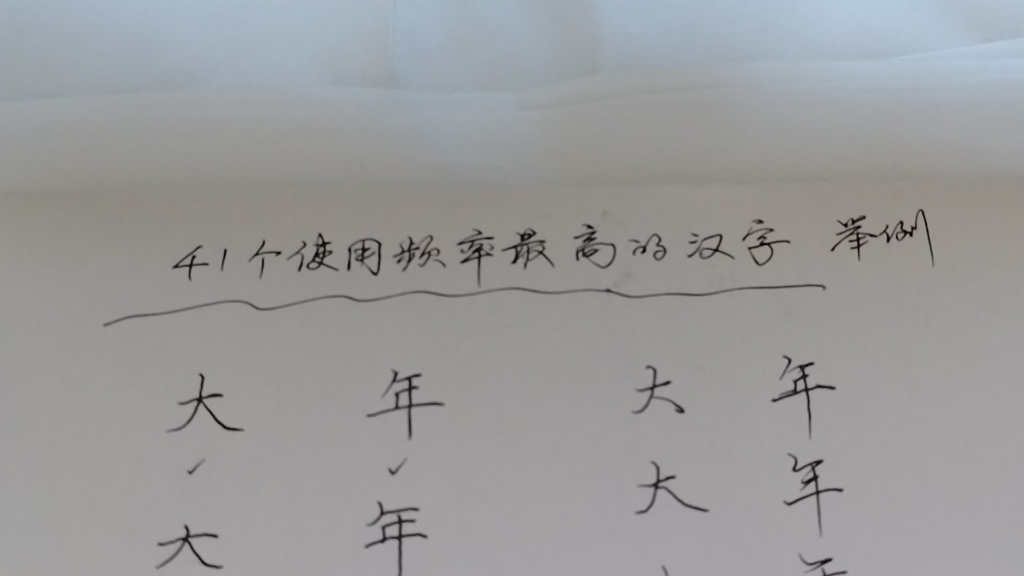 41个使用频率最高的汉字 举例
大 年 大 年
大 年
大 年